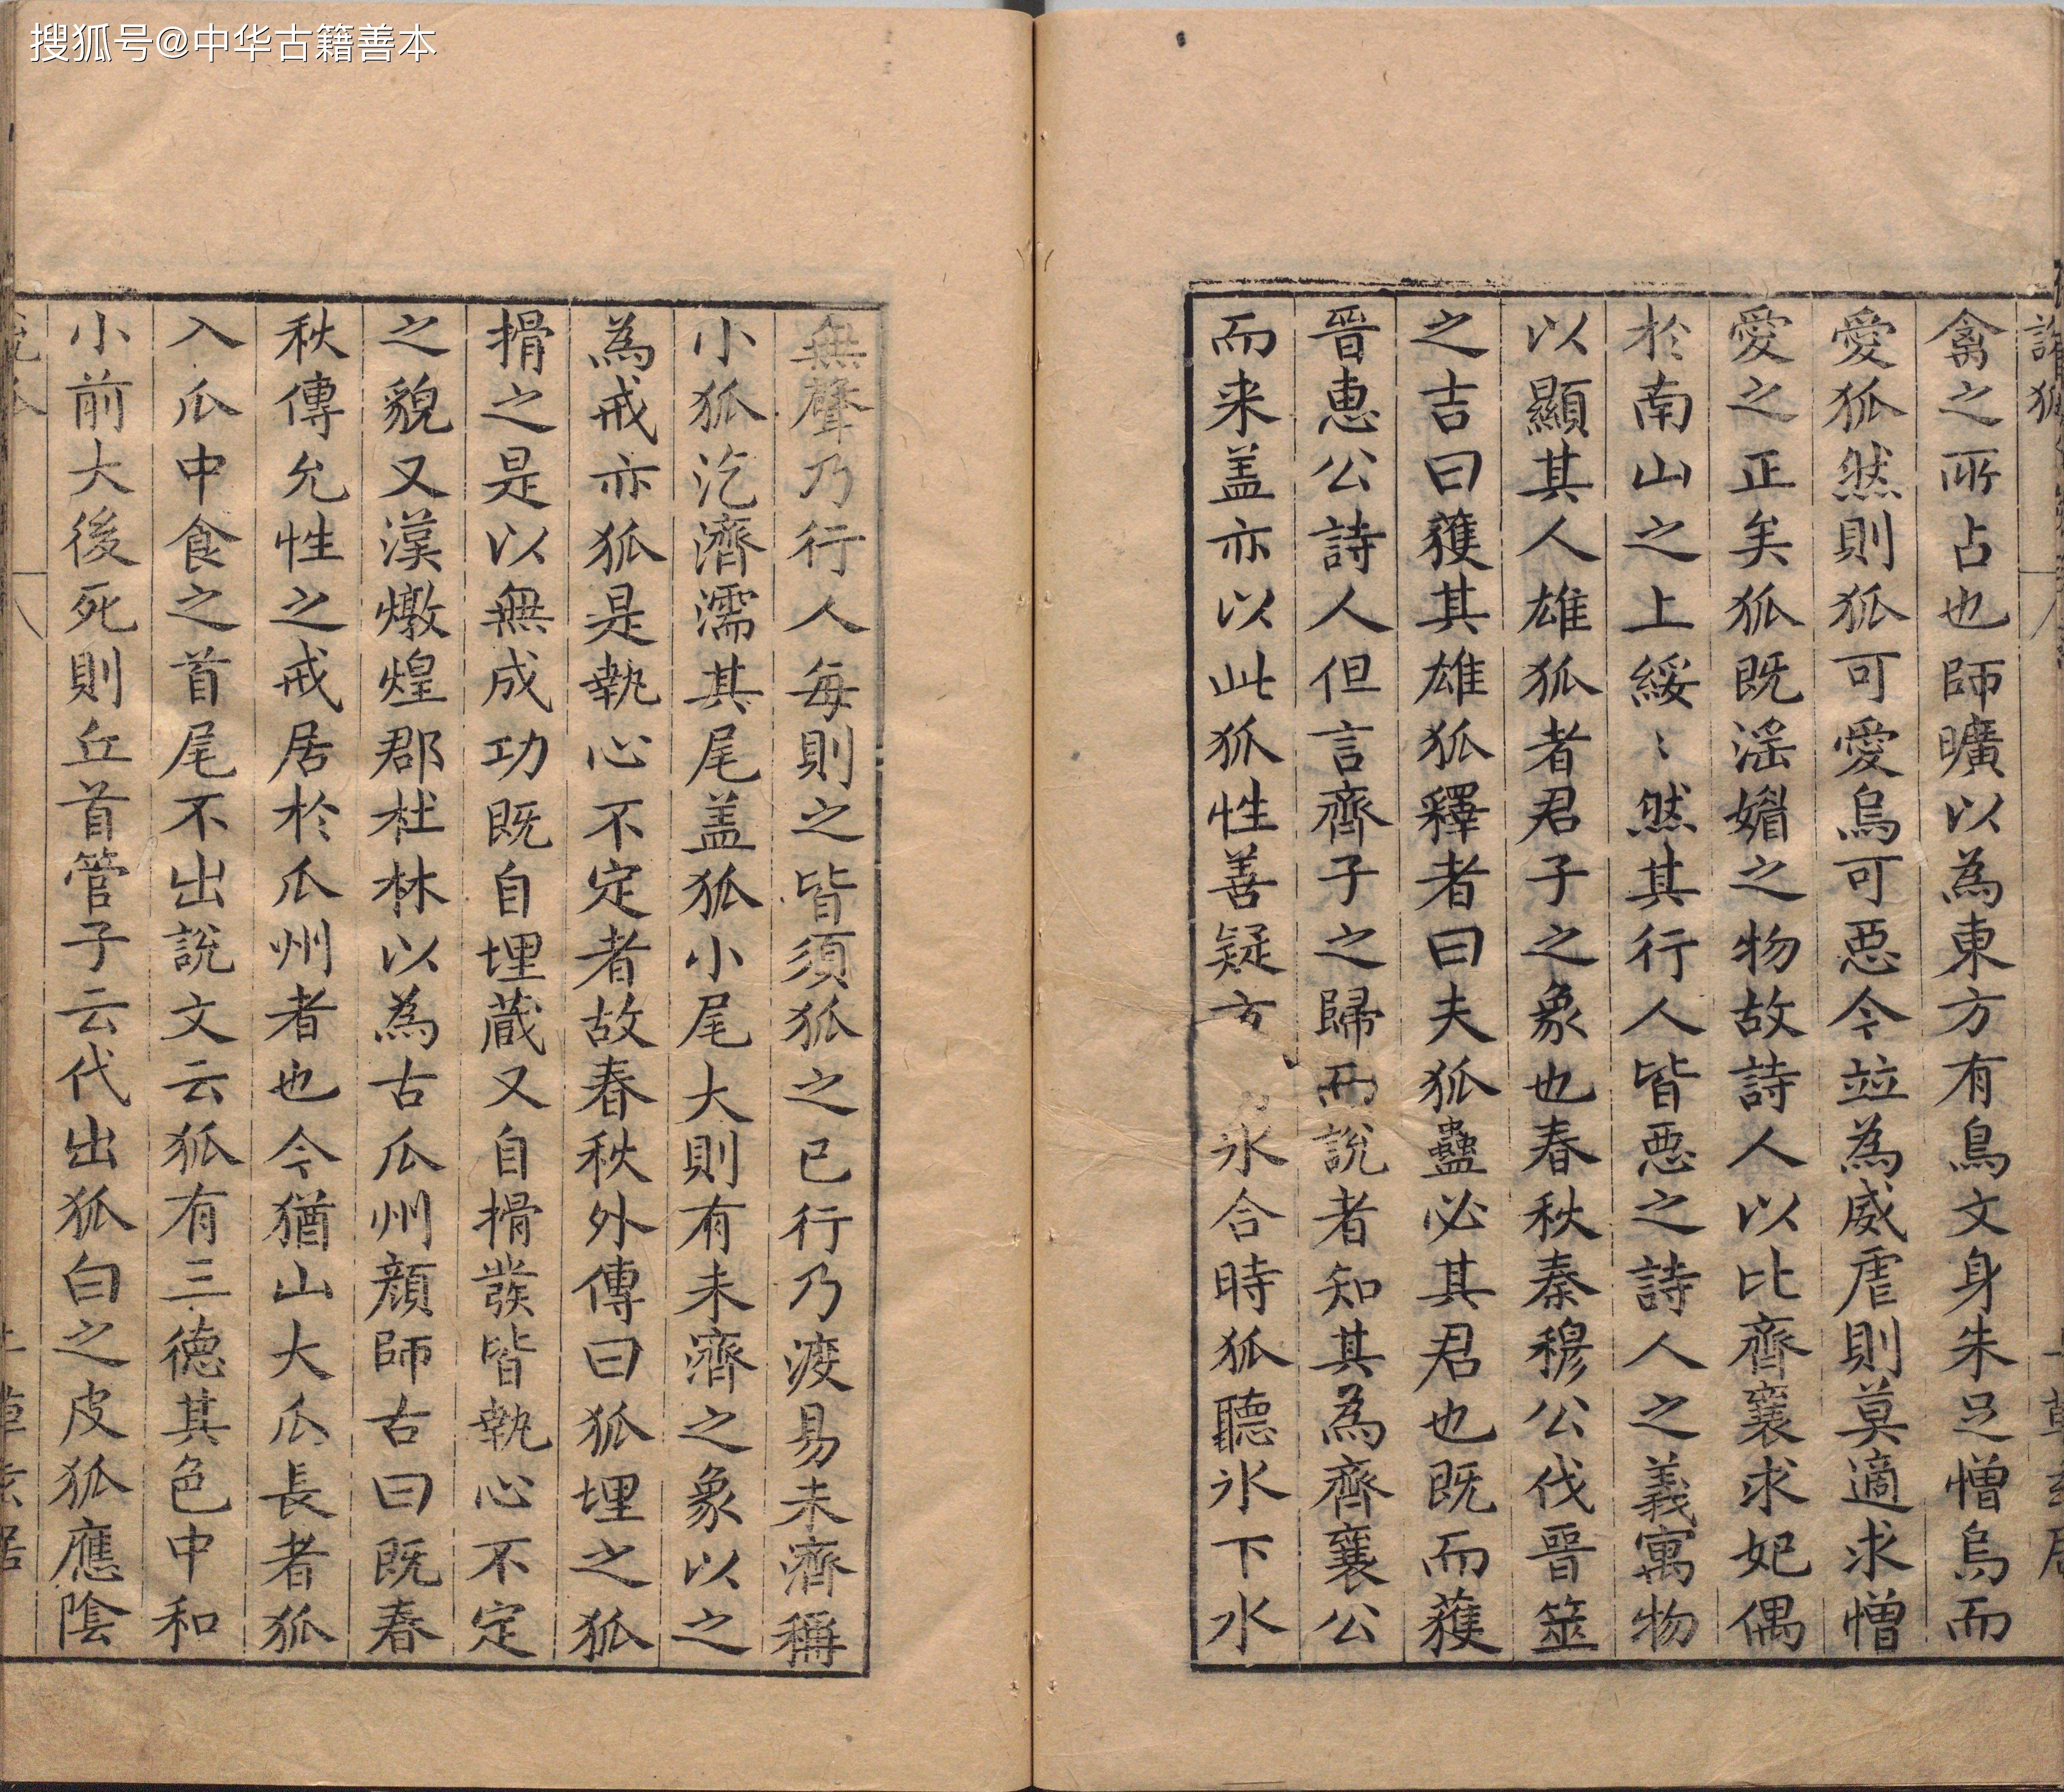 搜狐号@中华古籍善本
禽之所占也師曠以為東方有鳥文身朱足憎烏而
愛狐然則狐可愛烏可惡今竝為威虐則莫適求憎
愛之正矣狐既滛媚之物故詩人以比齊襄求妃偶
於南山之上綏〻然其行人皆惡之詩人之義寓物
以顯其人雄狐者君子之象也春秋秦穆公伐晉筮
之吉曰獲其雄狐釋者曰夫狐蠱必其君也既而獲
晉惠公詩人但言齊子之歸而說者知其為齊襄公
而来盖亦以此狐性善疑方氷合時狐聽氷下水
無聲乃行人每則之皆須狐之已行乃渡易未濟稱
小狐汔濟濡其尾盖狐小尾大則有未濟之象以之
為戒亦狐是執心不定者故春秋外傳曰狐埋之狐
搰之是以無成功既自埋蔵又自搰發皆執心不定
之貌又漢燉煌郡杜林以為古瓜州顔師古曰既春
秋傳允性之戒居於瓜州者也今猶山大瓜長者狐
入瓜中食之首尾不出説文云狐有三德其色中和
小前大後死則丘首管子云代出狐白之皮狐應陰